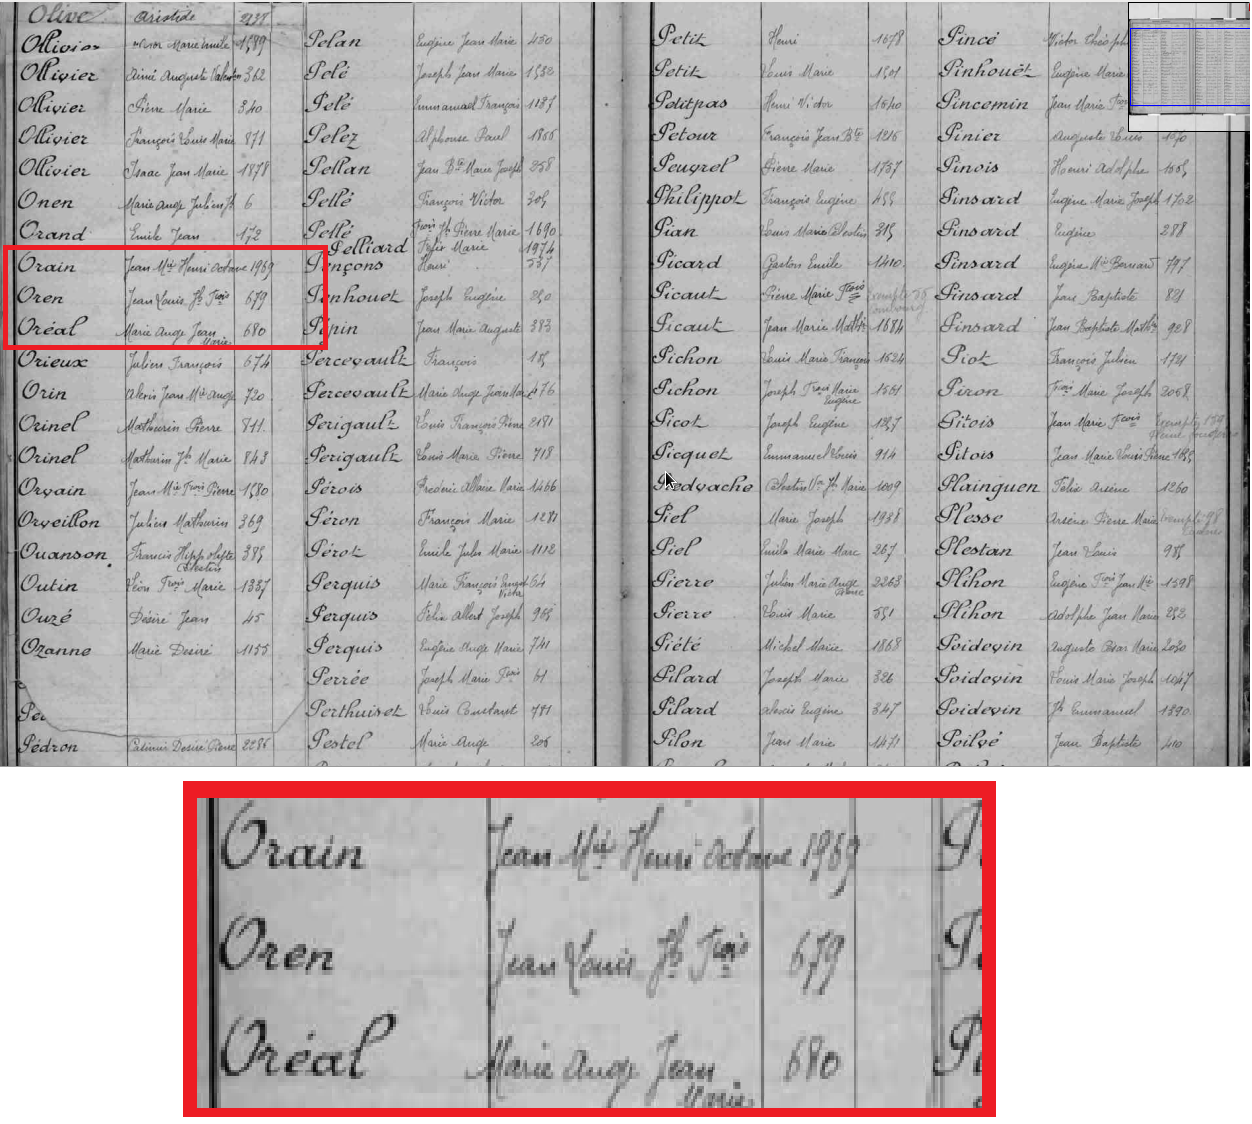 Olive Aristide
Ollivier Marie Emile 1589
Ollivier Aimé Auguste Valentin 362
Ollivier Pierre Marie 340
Ollivier François Louis Marie 871
Ollivier Isaac Jean Marie 1878
Onen Marie Ange Julien Jh 6
Orand Emile Jean 172
Orain Jean Mie Henri Octave 1969
Oren Jean Louis Jh Frois 679
Oréal Marie Ange Jean Marie 680
Orieux Julien François 674
Orin Alexis Jean Mie Ange 720
Orinel Mathurin Pierre 811
Orinel Mathurin Jh Marie 843
Orvain Jean Mie Frois Pierre 1580
Orveillon Julien Mathurin 369
Ouanson Francis Hippolyte Célestin 385
Outin Léon Frois Marie 1337
Ouzé Désiré Jean 45
Ozanne Marie Désiré 1155
Pédron Casimir Désiré Pierre 2286
Pelan Eugène Jean Marie 450
Pelé Joseph Jean Marie 1532
Pelé Emmanuel François 1187
Pelez Alphonse Paul 1866
Pellan Jean Bte Marie Joseph 258
Pellé François Victor 305
Pellé Frois Jh Pierre Marie 1690
Pelliard Félix Marie 1974
Pençons Henri 537
Penhouet Joseph Eugène 250
Pépin Jean Marie Auguste 383
Percevault François 185
Percevault Marie Ange Jean Marie 476
Perigault Louis François Pierre 2181
Perigault Louis Marie Pierre 718
Pérois Frédéric Marie 1466
Péron François Marie 1281
Pérot Emile Jules Marie 1112
Perquis Marie François 64
Perquis Félix Albert Joseph 965
Perquis Eugène Ange Marie 741
Perrée Joseph Marie Frois 61
Perthuiset Louis Constant 781
Pestel Marie Ange 206
Petit Henri 1678
Petit Louis Marie 1501
Petitpas Henri Victor 1540
Petour François Jean Bte 1216
Peuvrel Pierre Marie 1737
Philippot François Eugène 455
Pian Louis Marie Célestin 315
Picard Gaston Emile 1410
Picaut Pierre Marie Frois
Picaut Jean Marie Math. 1684
Pichon Louis Marie François 1624
Pichon Joseph Frois Marie Eugène 1561
Picot Joseph Eugène 1257
Picquet Emmanuel Louis 914
Piedvache Célestin Vor Jh Marie 1009
Piel Marie Joseph 1938
Piel Emile Marie Marc 267
Pierre Julien Marie Ange 2263
Pierre Louis Marie 551
Piété Michel Marie 1868
Pilard Joseph Marie 326
Pilard Alexis Eugène 347
Pilon Jean Marie 1471
Pincé Victor
Pinhouët Eugène Marie
Pincemin Jean Marie
Pinier Auguste Louis 1070
Pinois Henri Adolphe
Pinsard Eugène Marie Joseph 1702
Pinsard Eugène 288
Pinsard Eugène Mie Bernard 797
Pinsard Jean Baptiste 821
Pinsard Jean Baptiste Math. 928
Piot François Julien 1721
Piron Frois Marie Joseph 2058
Pitois Jean Marie Frois
Pitois Jean Marie Louis Pierre
Plainguen Félix Arsène 1260
Plesse Arsène Pierre Marie
Plestan Jean Louis 985
Plihon Eugène Frois Jean Mie 1598
Plihon Adolphe Jean Marie 252
Poidevin Auguste Marie 2030
Poidevin Louis Marie Joseph 1047
Poidevin Jh Emmanuel 1390
Poilvé Jean Baptiste 410
Orain Jean Mie Henri Octave 1969
Oren Jean Louis Jh Frois 679
Oréal Marie Ange Jean 680
Marie